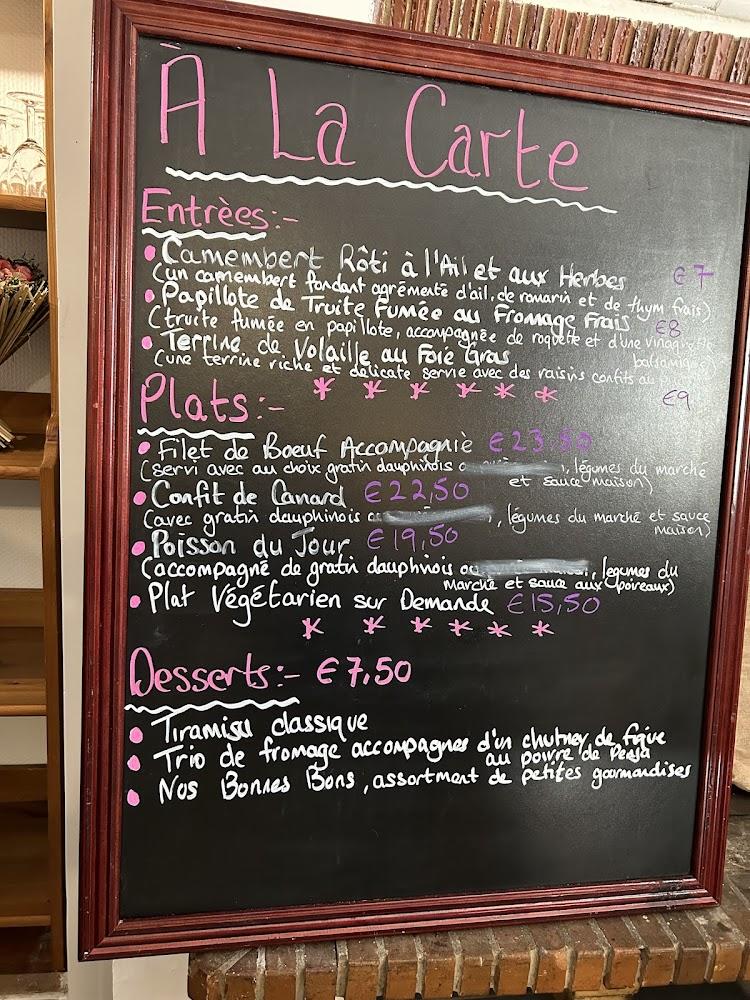 À La Carte
Entrèes:-
• Camembert Rôti à l'Ail et aux Herbes €7
(un camembert fondant agrémenté d'ail, de romarin et de thym frais)
• Papillote de Truite Fumée au Fromage Frais €8
(truite fumée en papillote, accompagnée de roquette et d'une vinaigrette
balsamique)
• Terrine de Volaille au Foie Gras
(une terrine riche et délicate servie avec des raisins confits au
* * * * * * €9
Plats:-
• Filet de Boeuf Accompagniè €23.50
(servi avec au choix gratin dauphinois o , légumes du marché
et sauce maison)
• Confit de Canard €22,50
(avec gratin dauphinois , légumes du marché et sauce
maison)
• Poisson du Jour €19,50
(accompagné de gratin dauphinois ou , legumes du
Marché et sauce aux poireaux)
• Plat Végétarien sur Demande €15,50
* * * * * *
Desserts:- €7,50
• Tiramisu classique
• Trio de fromage accompagnes d'un chutney de figue
au poivre de
• Nos Bonnes Bons, assortment de petites gourmandises